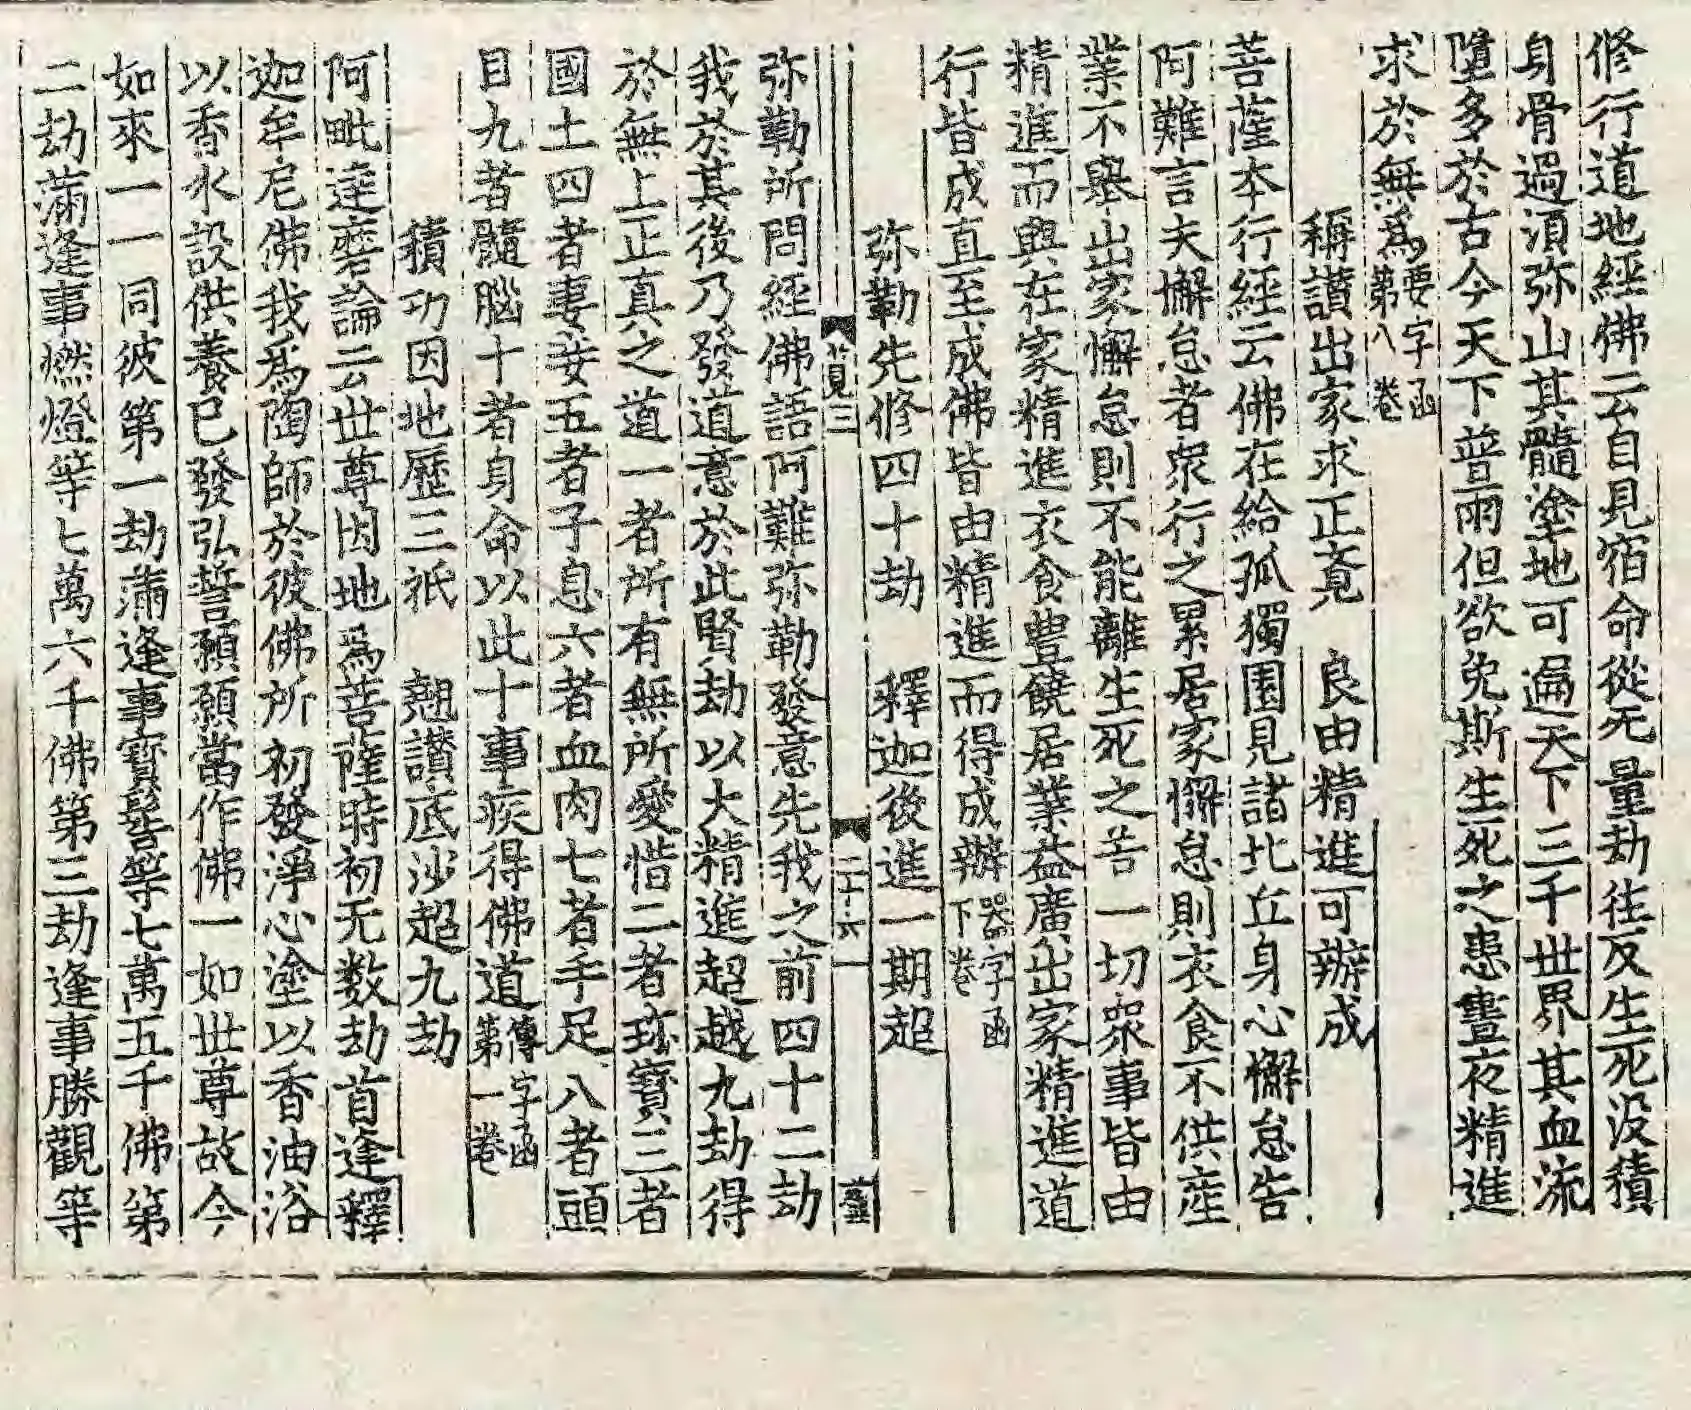 修行道地經佛云自見宿命從无量劫往反生死没積
身骨過湏弥山其髓塗地可遍天下三千世界其血流
墮多於古今天下普雨但欲免斯生死之患晝夜精進
求於無為要字函第八卷
稱讃出家求正覔　良由精進可辦成
菩薩本行經云佛在給孤獨園見諸比丘身心懈怠告
阿難言夫懈怠者衆行之累居家懈怠則衣食不供産
業不舉出家懈怠則不能離生死之苦一切衆事皆由
精進而興在家精進衣食豊饒居業益廣出家精進道
行皆成直至成佛皆由精進而得成辦器字函下卷
弥勒先修四十劫　釋迦後進一期超
萛三　二十六
弥勒所問經佛語阿難弥勒發意先我之前四十二劫
我於其後乃發道意於此賢劫以大精進超越九劫得
於無上正真之道一者所有無所愛惜二者珎寶三者
國土四者妻妾五者子息六者血肉七者手足八者頭
目九者髓腦十者身命以此十事疾得佛道傳字函第一卷
積功因地歷三祇　翹讃底沙超九劫
阿毗達磨論云世尊因地為菩薩時初无数劫首逢釋
迦牟尼佛我為陶師於彼佛所初發淨心塗以香油浴
以香水設供養已發弘誓願願當作佛一如世尊故今
如來一一同彼第一劫滿逢事寳髻等七萬五千佛第
二劫滿逢事燃燈等七萬六千佛第三劫逢事勝觀等